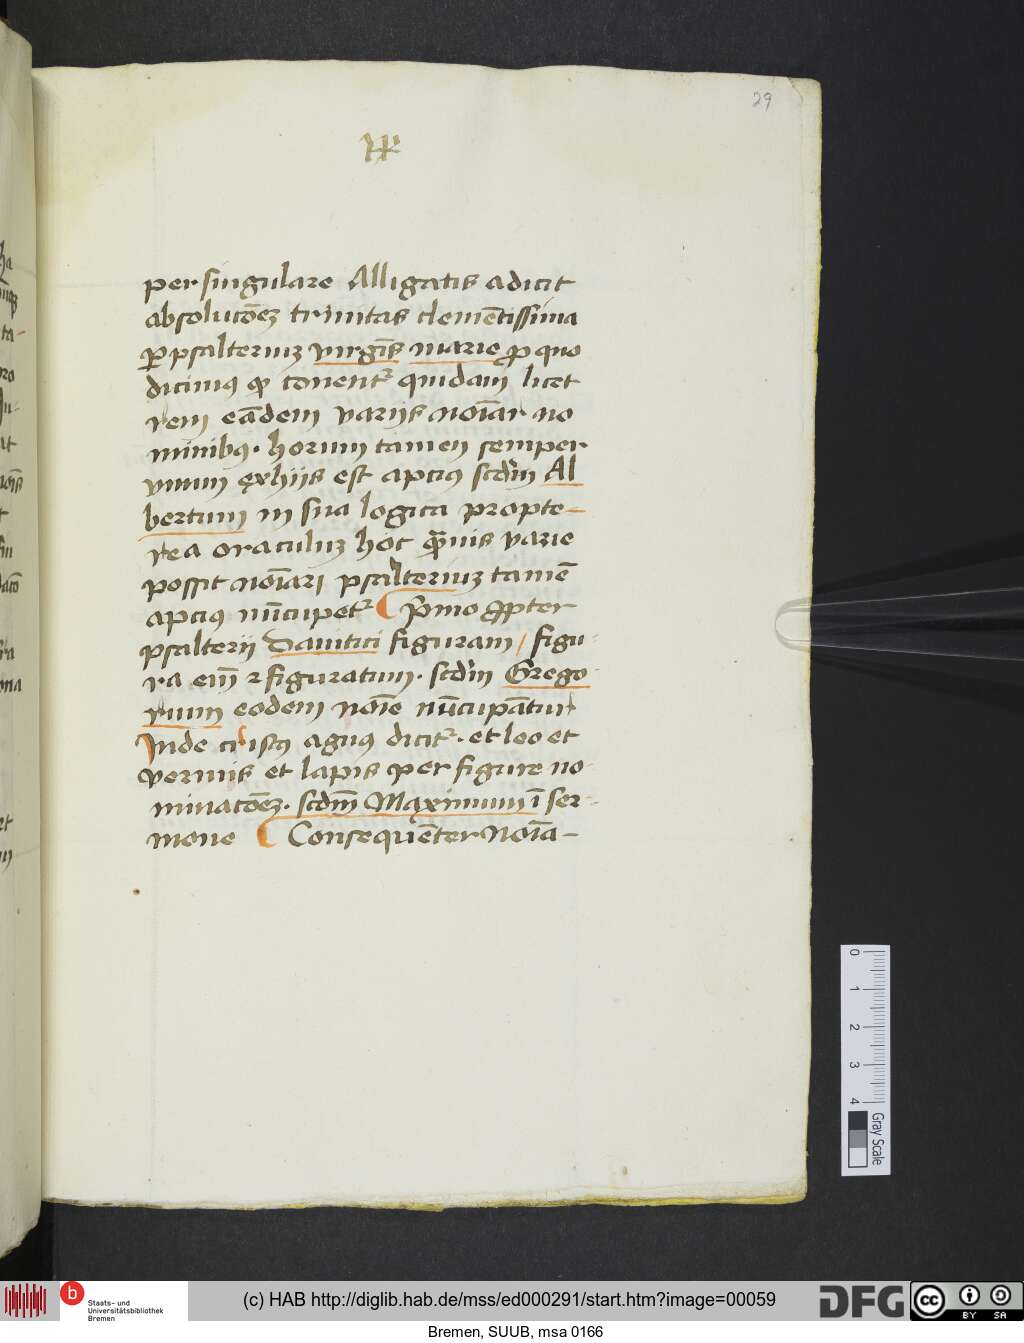 29
per singulare Alligatis adicit
absolucōeꝫ trinitas clemētissima
ꝑ psalteriuꝫ virgīs marie ꝓ quo
dicimꝰ ꝙ tenentr quidam licet
rem eādem varijs noīar no
minibꝰ. horum tamen semper
vnum exhijs est apciꝰ scdm Al
bertum in sua logica propte-
rea oraculuꝫ hoc q̄uis varie
possit noīari psalteriuꝫ tamē
apciꝰ nūcupetr Primo ꝓpter
psalterij Dauitici figuram / figu-
ra em̄ ⁊ figuratum. scdm Grego-
rium eodem noīe nūcupātur
Inde cristꝰ agnꝰ dicitr. et leo et
vermis et lapis per figure no-
minacōeꝫ. scdm Maximum ī ser-
mone Consequēter noīa-
0
1
2
3
4
Gray Scale
b
Staats- und
Universitätsbibliothek
Bremen
(c) HAB http://diglib.hab.de/mss/ed000291/start.htm?image=00059
DFG
cc
BY
SA
Bremen, SUUB, msa 0166